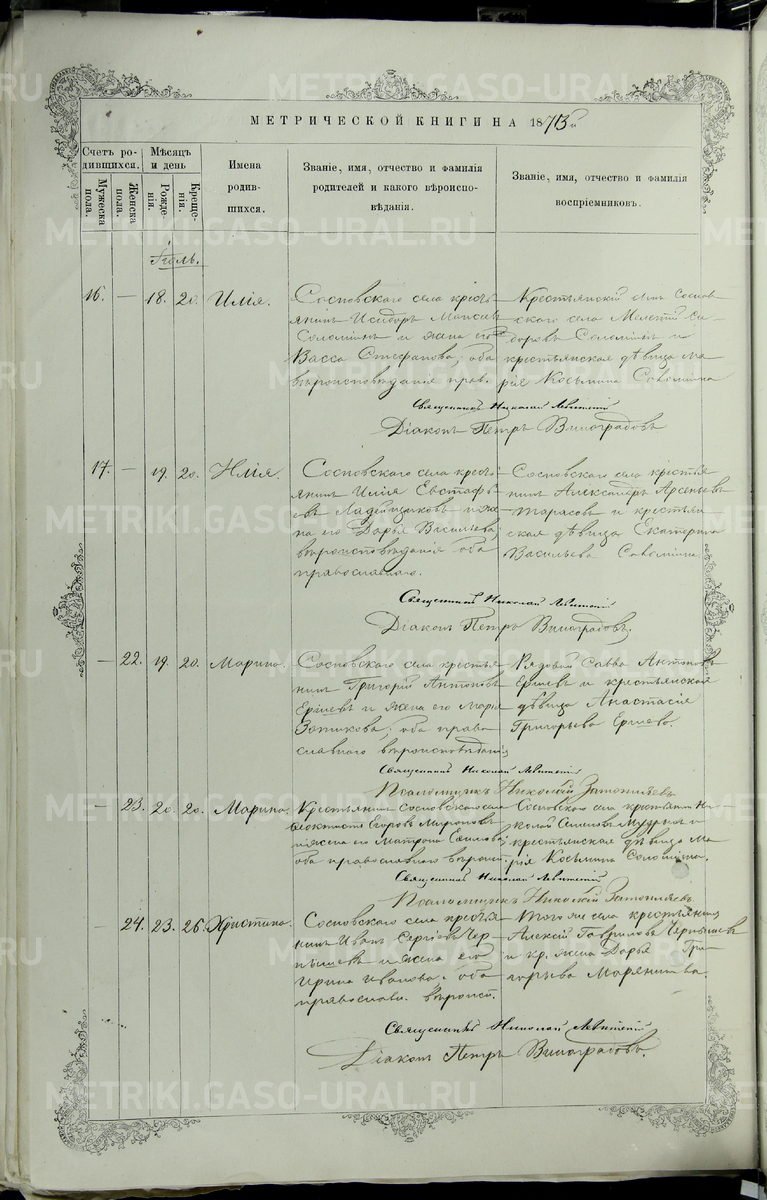 МЕТРИЧЕСКОЙ КНИГИ НА 1873й
Счетъ ро-
дившихся.
Мужеска
пола.
Женска
пола.
Мѣсяцъ
и день
Рожде-
нія.
Креще-
нія.
Имена
родив-
шихся.
Званіе, имя, отчество и фамилія
родителей и какого вѣроиспо-
вѣданія.
Званіе, имя, отчество и фамилія
воспріемниковъ.
Іюль.
16. — 18. 20. Илія.
Сосновскаго села кресть-
янинъ Исидоръ
и жена его
Васса Стефанова, оба
вѣроисповѣданія прав.
Крестьянскій сынъ Соснов-
скаго села Мелетій Си-
доровъ Соломинъ и
крестьянская дѣвица Ма-
рія Косьмина Соломина
Священникъ Николай Левитскій
Діаконъ Петръ Виноградовъ
17. — 19. 20. Илія.
Сосновскаго села кресть-
янинъ Илія Евстафь-
евъ и же-
на его Дарья Васильева,
вѣроисповѣданія оба
православнаго.
Сосновскаго села крестья-
нинъ Александръ Арсеньевъ
Тарасовъ и крестьян-
ская дѣвица Екатерина
Васильева Соломина
Священникъ Николай Левитскій
Діаконъ Петръ Виноградовъ.
— 22. 19. 20. Марина.
Сосновскаго села крестья-
нинъ Григорій Антоновъ
Ершевъ и жена его Марья
Зотикова, оба право-
славнаго вѣроисповѣданія
Рядовой Савва Антоновъ
Ершевъ и крестьянская
дѣвица Анастасія
Григорьева Ершева
Священникъ Николай Левитскій
Псаломщикъ Николай
— 23. 20. 20. Марина.
Крестьянинъ Сосновскаго села
Ѳеоктистъ Егоровъ Мироновъ
и жена его Матрона
оба православнаго вѣроисп.
Сосновскаго села крестьянинъ Ни-
колай Семеновъ и
крестьянская дѣвица Ма-
рія Косьмина Соломина.
Священникъ Николай Левитскій
Псаломщикъ Николай
— 24. 23. 26. Христина.
Сосновскаго села крестья-
нинъ Иванъ Сергіевъ Чер-
нышевъ и жена его
Ирина Иванова, оба
православн. вѣроисп.
Того же села крестьянинъ
Алексій Гавриловъ Чернышевъ
и кр. жена Дарья Гри-
горьева
Священникъ Николай Левитскій
Діаконъ Петръ Виноградовъ.
METRIKI.GASO-URAL.RU